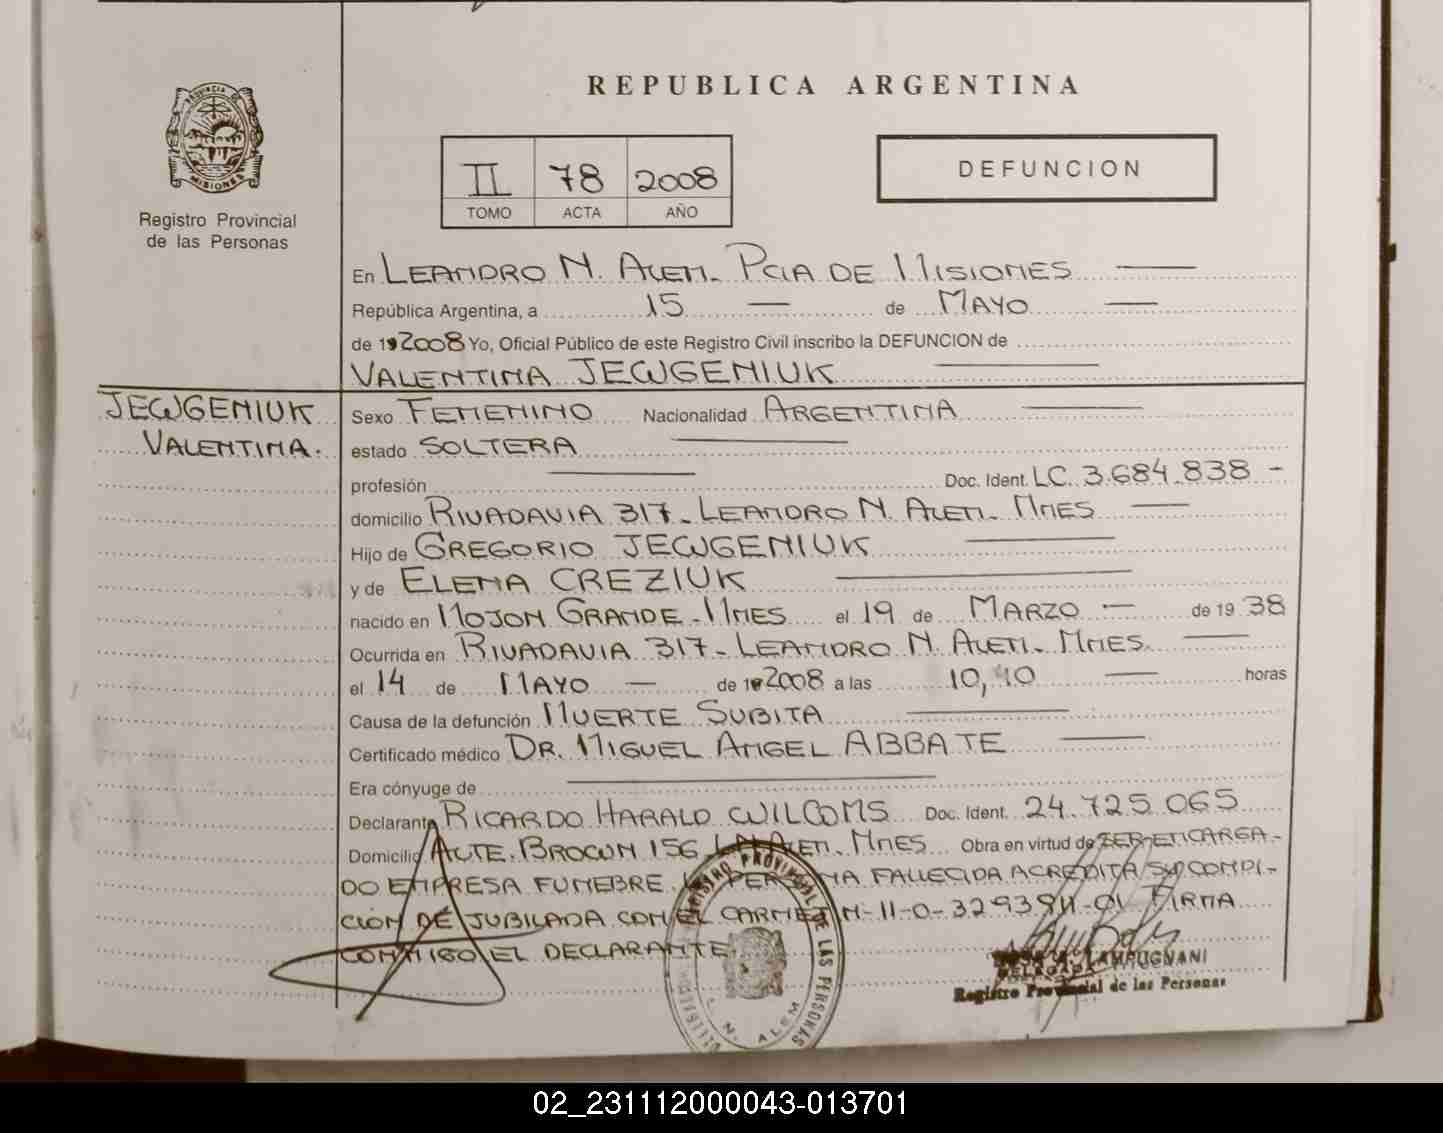 REPUBLICA ARGENTINA
PROVINCIA DE
MISIONES
Registro Provincial
de las Personas
II 78 2008
TOMO ACTA AÑO
DEFUNCION
En LEANDRO N. ALEM. PCIA DE MISIONES
República Argentina, a 15 de MAYO
de 192008 Yo, Oficial Público de este Registro Civil inscribo la DEFUNCION de
VALENTINA JEWGENIUK
JEWGENIUK
VALENTINA.
Sexo FEMENINO Nacionalidad ARGENTINA
estado SOLTERA
profesión Doc. Ident. LC. 3.684.838 -
domicilio RIVADAVIA 317. LEANDRO N. ALEM. MNES
Hijo de GREGORIO JEWGENIUK
y de ELENA CREZIUK
nacido en MOJON GRANDE. MNES el 19 de MARZO de 19 38
Ocurrida en RIVADAVIA 317. LEANDRO N. ALEM. MNES.
el 14 de MAYO de 192008 a las 10,40 horas
Causa de la defunción MUERTE SUBITA
Certificado médico DR. MIGUEL ANGEL ABBATE
Era cónyuge de
Declarante RICARDO HARALD WILCOMS Doc. Ident. 24.725.065
Domicilio ALTE. BROWN 156 L.N.ALEM. MNES Obra en virtud de SER ENCARGA-
DO EMPRESA FUNEBRE. LA PERSONA FALLECIDA ACREDITA SU CONDI-
CION DE JUBILADA CON EL CARNET N- 11-0-3293911-01 FIRMA
CONMIGO EL DECLARANTE.
REGISTRO PROVINCIAL DE LAS PERSONAS
L. N. ALEM
LAMPUGNANI
DELEGADA
Registro Provincial de las Personas
02_231112000043-013701